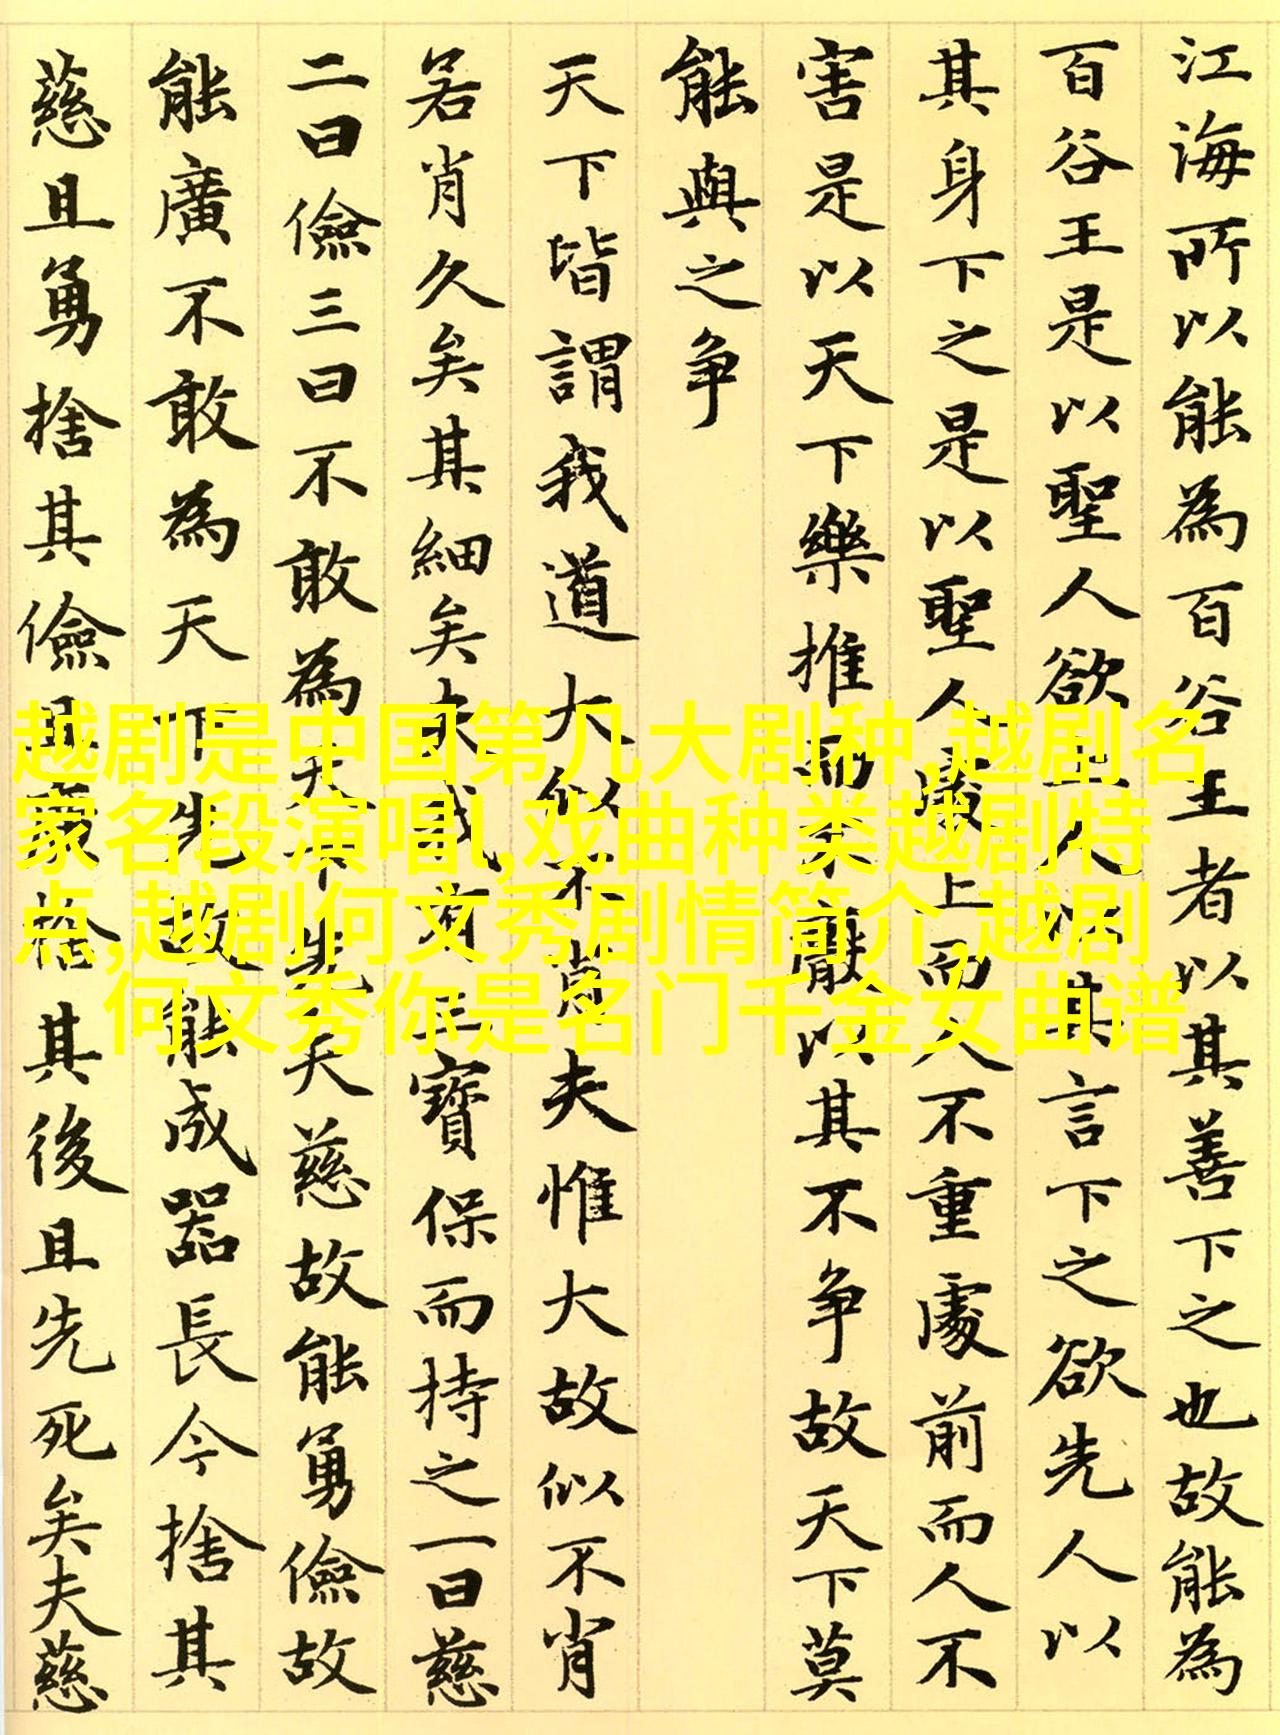 江海所以能為百谷王者以其善下之也故能為
百谷王是以聖人欲上人以其言下之欲先人以
其身下之是以聖人處上而人不重處前而人不
害是以天下樂推而不厭以其不争故天下莫
能與之争
天下皆謂我道大似不肖夫惟大故似不肖
若肖久矣其細矣夫我有三寶保而持之一曰慈
二曰儉三曰不敢為天下先夫慈故能勇儉故
能廣不敢為天下先故能成器長今捨其
慈且勇捨其儉且廣捨其後且先死矣夫慈
越剧是中国第几大剧种,越剧名
家名段演唱l,戏曲种类越剧特
点,越剧何文秀剧情简介,越剧
何文秀你是名门千金女曲谱